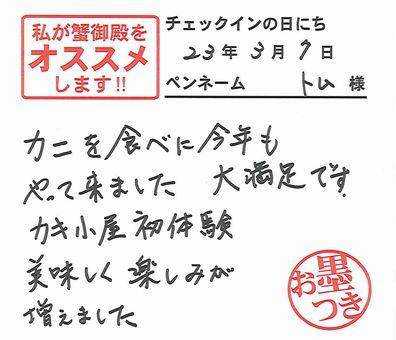 私が蟹御殿を
オススメ
します!!
チェックインの日にち
23年3月7日
ペンネーム トム 様
カニを食べに今年も
やって来ました 大満足です
カキ小屋初体験
美味しく楽しみが
増えました
お墨
つき